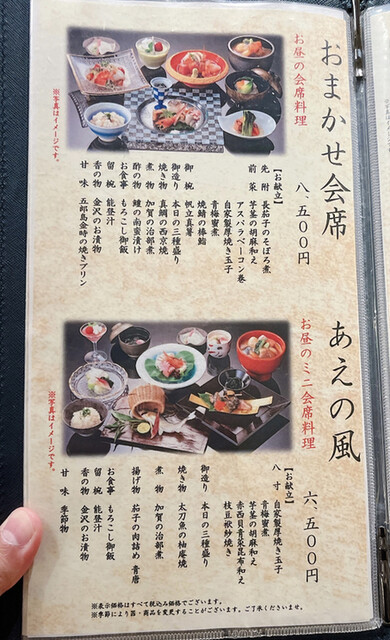 おまかせ会席
八、五〇〇円
お昼の会席料理
【お献立】
先附 長茄子のそぼろ煮
前菜 芋茎の胡麻和え
アスパラベーコン巻
自家製厚焼き玉子
青梅蜜煮
焼鯖の棒鮨
御椀 帆立真薯
御造り 本日の三種盛り
焼き物 真鯛の西京焼
煮物 加賀の治部煮
酢の物 鱧の南蛮漬け
お食事 もろこし御飯
留椀 能登汁
香の物 金沢のお漬物
甘味 五郎島金時の焼きプリン
※写真はイメージです。
あえの風
六、五〇〇円
お昼のミニ会席料理
【お献立】
八寸 自家製厚焼き玉子
青梅蜜煮
芋茎の胡麻和え
赤西貝青菜昆布和え
枝豆袱紗焼き
御造り 本日の三種盛り
焼き物 太刀魚の柚庵焼
煮物 加賀の治部煮
揚げ物 茄子の肉詰め 青唐
お食事 もろこし御飯
留椀 能登汁
香の物 金沢のお漬物
甘味 季節物
※写真はイメージです。
※表示価格はすべて税込み価格でございます。
※季節により器・商品を変更することがございます。ご了承くださいませ。